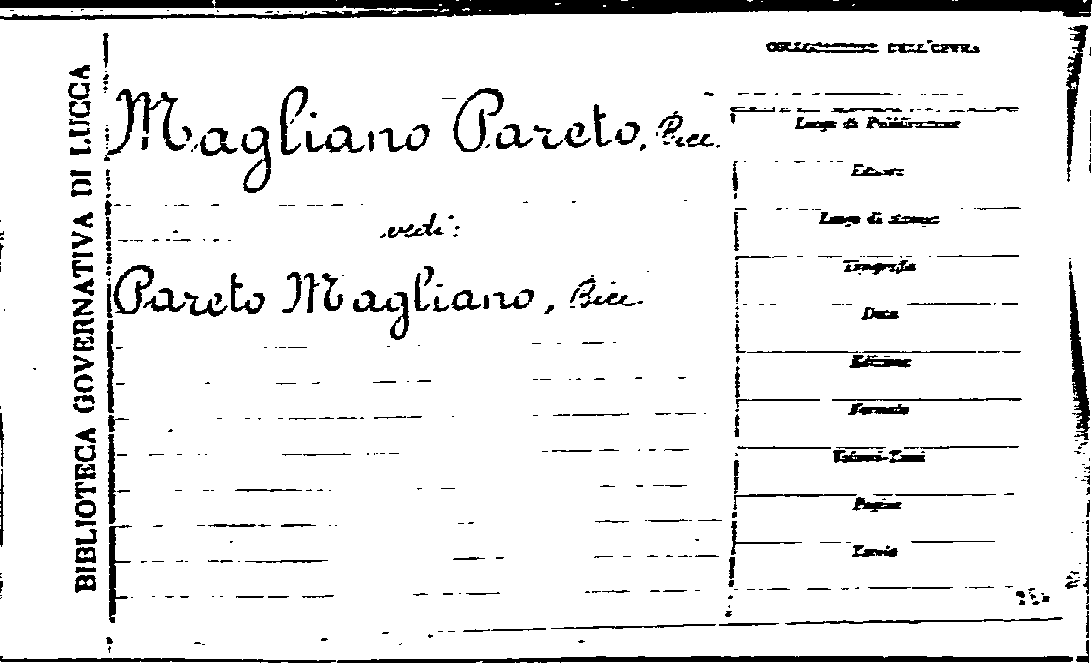 BIBLIOTECA GOVERNATIVA DI LUCCA
Magliano Pareto, Bice.
vedi:
Pareto Magliano, Bice.
COLLOCAZIONE DELL'OPERA
Luogo di Pubblicazione
Editore
Luogo di stampa
Tipografia
Data
Edizione
Formato
Volumi-Tomi
Pagine
Tavole